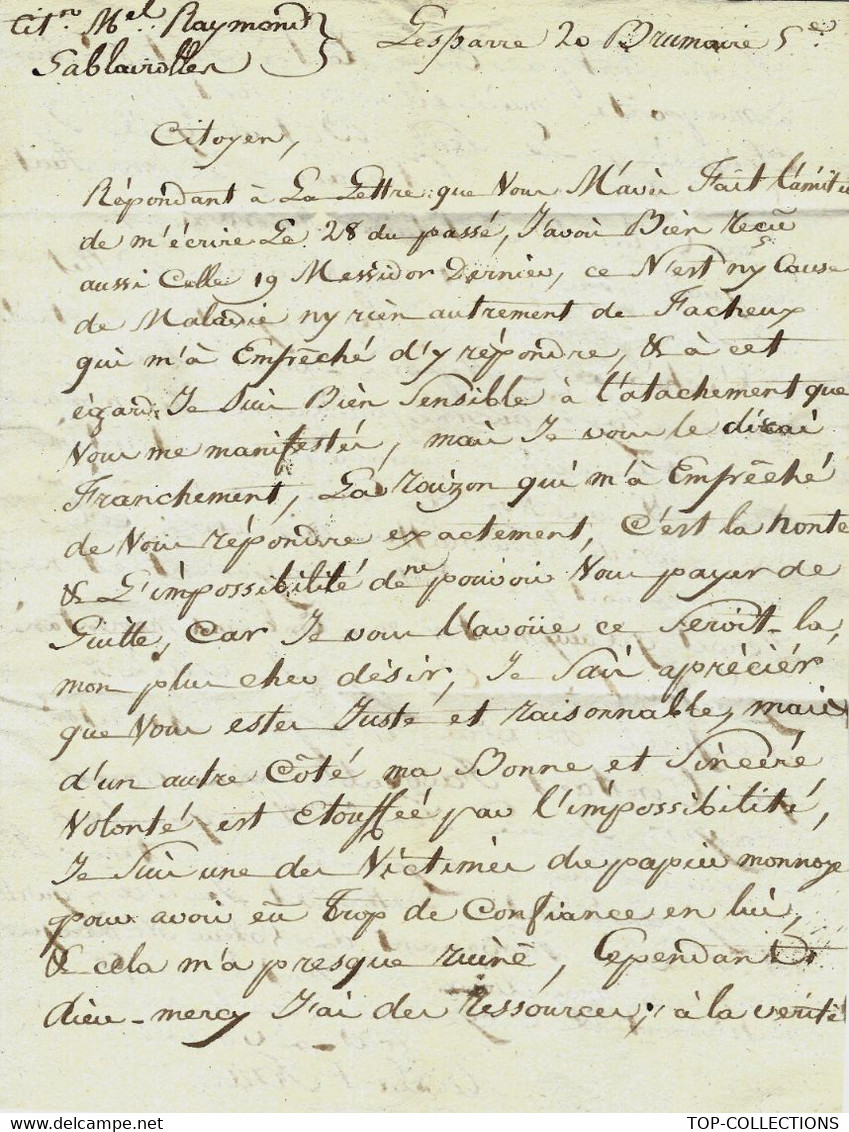 Cit.n M.el Raymond
Sablairolles
Lesparre 20 Brumaire 5.e
Citoyen,
Répondant à La Lettre que Vous M'avés Fait L'amitié
de m'écrire Le 28 du passé, J'avois Bièn reçû
aussi Celle 19 Messidor Dernier, ce N'est ny Cause
de Maladie ny rièn autrement de Facheux
qui m'à Emprêché d'y répondre, & à cet
égard Je Suis Bièn Sensible à l'atachement que
Vous me manifestés, mais Je vous le dirai
Franchement, La raizon qui m'à Emprêché
de Vous répondre exactement, C'est la honte
& L'impossibilité de ne pouvoir Vous payer de
Suitte, Car Je vous L'avoüe ce Seroit-la,
mon plus cher désir, Je Sais aprécier
que Vous estes Juste et raisonnable, mais
d'un autre Côté ma Bonne et Sincère
Volonté est Etouffée par l'impossibilité,
Je Suis une des Victimes du papier monnoye
pour avoir eû Trop de Confiance en lui,
& cela m'a presque ruiné, Cependant
dieu-mercy J'ai des Ressources, à la verité
TOP-COLLECTIONS